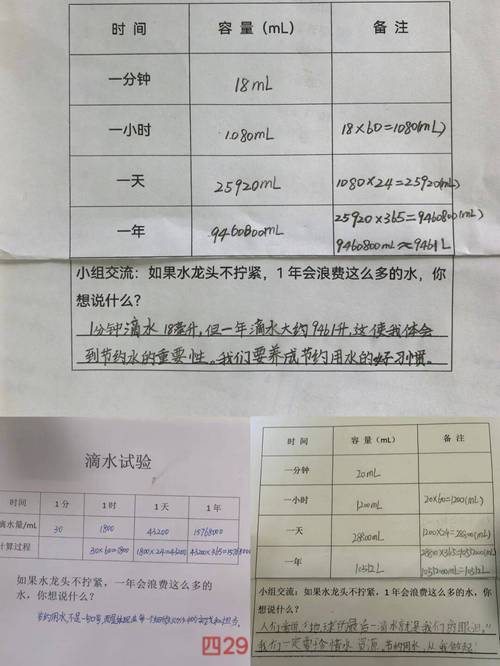 时 间 容 量（mL） 备 注
一分钟 18mL
一小时 1080mL 18×60=1080(mL)
一天 25920mL 1080×24=25920(mL)
一年 9460800mL 25920×365=9460800(mL)
9460800mL≈9461L
小组交流：如果水龙头不拧紧，1 年会浪费这么多的水，你
想说什么？
1分钟滴水18毫升，但一年滴水大约9461升，这使我体会
到节约水的重要性。我们要养成节约用水的好习惯。
滴水试验
时间 1 分 1 时 1 天 1 年
滴水量/mL 30 1800 43200 15768000
计算过程 30×60=1800 1800×24=43200 43200×365=15768000
如果水龙头不拧紧，一年会浪费这么多的
水，你想说什么？
节约用水，不是一句口号
四29
时 间 容 量（mL） 备 注
一分钟 20mL
一小时 1200mL 20×60=1200(mL)
一天 28800mL 1200×24=28800(mL)
一年 10512L 28800×365=10512000(mL)
10512000mL=10512L
小组交流：如果水龙头不拧紧，1 年会浪费这么多的水，你
想说什么？
地球的最后一滴水就是我们的眼泪。
我们一定要珍惜水资源，节约用水，从我做起